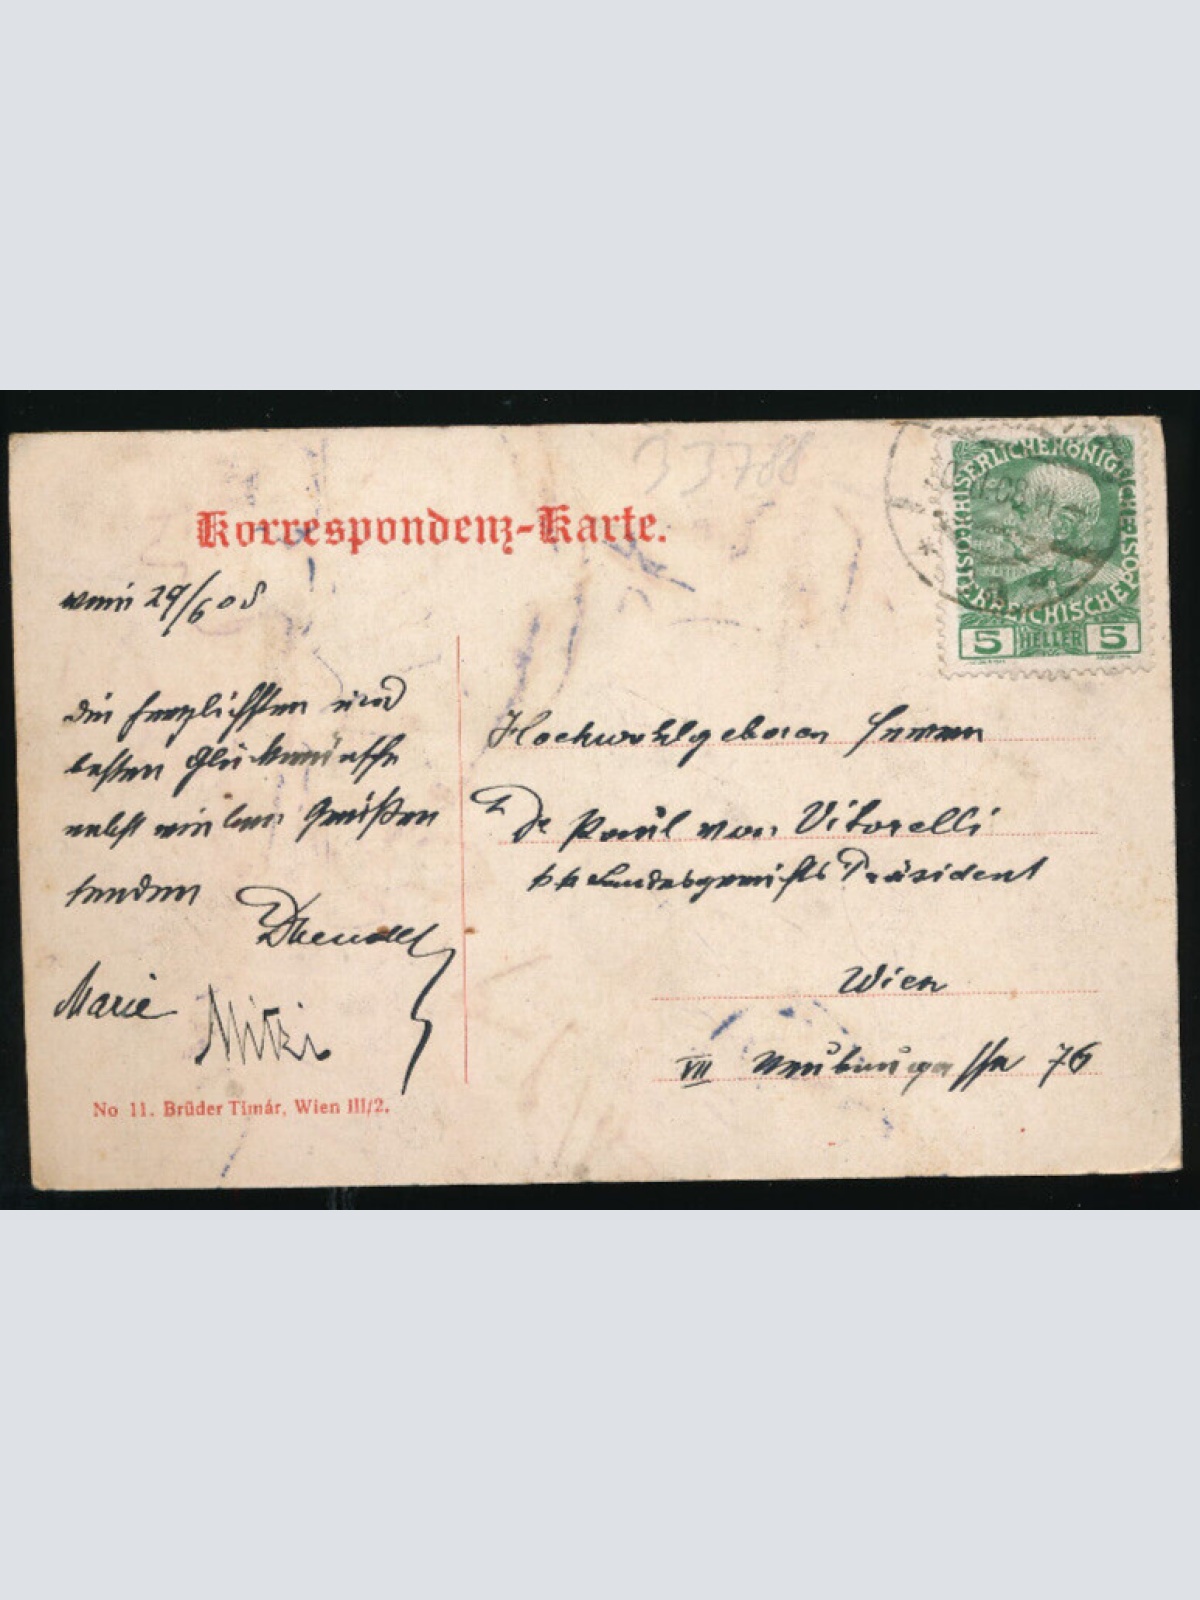 33788
Korrespondenz-Karte.
KAISERLICHEKÖNIGLICHE ÖSTERREICHISCHE POST
5 HELLER 5
Wien 29/6 08
die herzlichsten und
besten Glückwünsche
nebst vielen Grüßen
senden
Marie Mitzi
Hochwohlgeboren Herrn
Dr Paul von Vitorelli
k k Landesgerichts Präsident
Wien
VII Neubaugasse 76
No 11. Brüder Timár, Wien III/2.